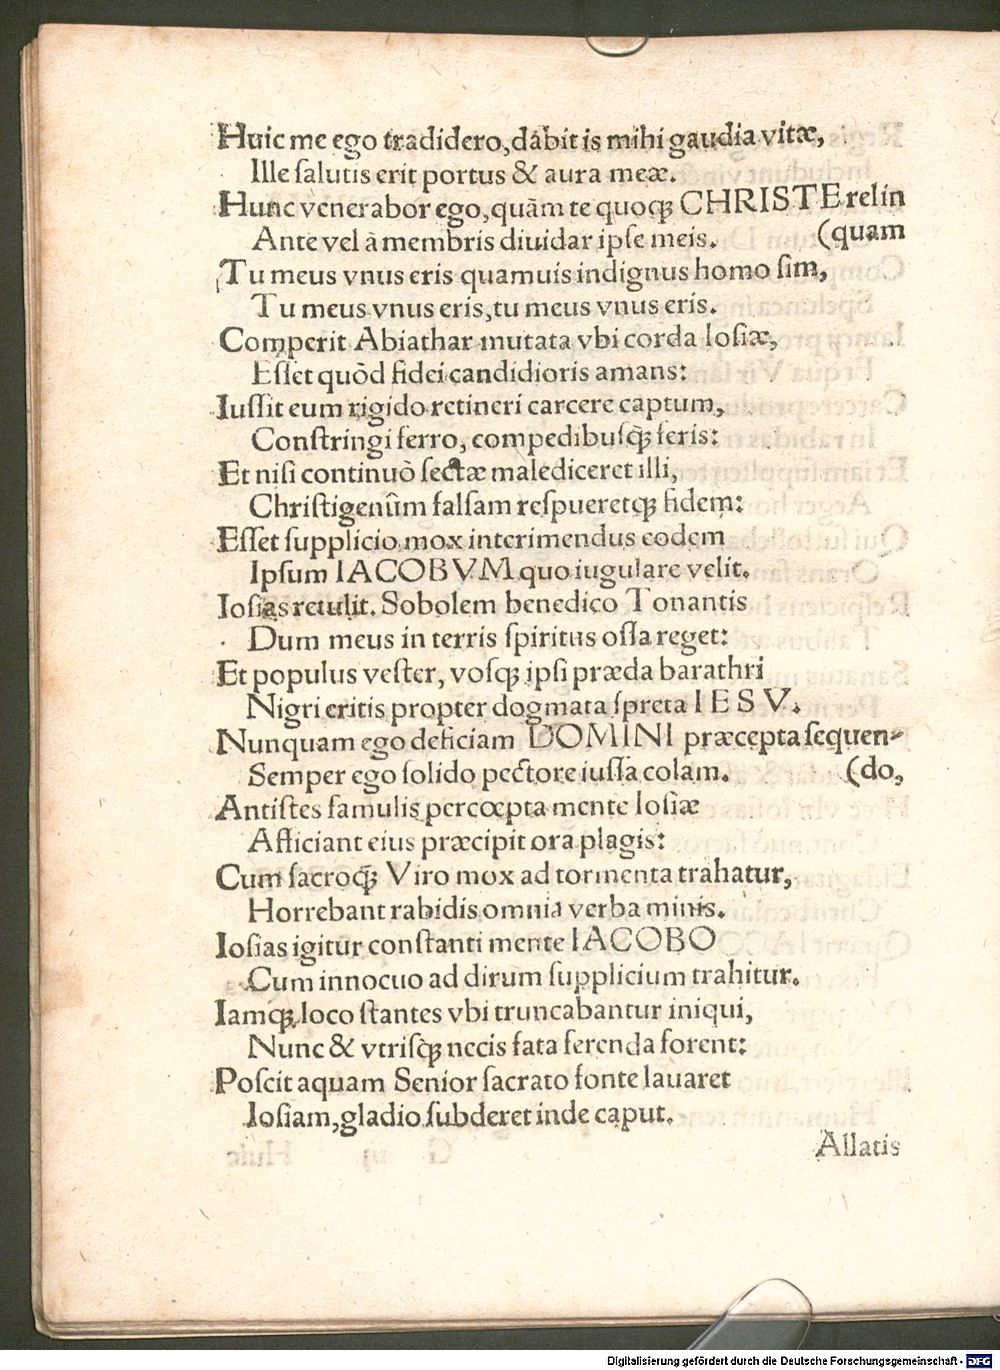 Huic me ego tradidero, dabit is mihi gaudia vitæ,
Ille salutis erit portus & aura meæ.
Hunc venerabor ego, quãm te quoqꝫ CHRISTE relin
Ante vel à membris diuidar ipse meis. (quam
Tu meus vnus eris quamuis indignus homo sim,
Tu meus vnus eris, tu meus vnus eris.
Comperit Abiathar mutata vbi corda Iosiæ,
Esset quòd fidei candidioris amans:
Iussit eum rigido retineri carcere captum,
Constringi ferro, compedibusqꝫ feris:
Et nisi continuò sectæ malediceret illi,
Christigenûm falsam respueretqꝫ fidem:
Esset supplicio mox interimendus eodem
Ipsum IACOBVM quo iugulare velit.
Iosias retulit. Sobolem benedico Tonantis
Dum meus in terris spiritus ossa reget:
Et populus vester, vosqꝫ ipsi præda barathri
Nigri eritis propter dogmata spreta IESV.
Nunquam ego deficiam DOMINI præcepta sequen-
Semper ego solido pectore iussa colam. (do,
Antistes famulis percœpta mente Iosiæ
Afficiant eius præcipit ora plagis:
Cum sacroqꝫ Viro mox ad tormenta trahatur,
Horrebant rabidis omnia verba minis.
Iosias igitur constanti mente IACOBO
Cum innocuo ad dirum supplicium trahitur.
Iamqꝫ loco stantes vbi truncabantur iniqui,
Nunc & vtrisqꝫ necis fata ferenda forent:
Poscit aquam Senior sacrato fonte lauaret
Iosiam, gladio subderet inde caput.
Allatis
Digitalisierung gefördert durch die Deutsche Forschungsgemeinschaft - DFG